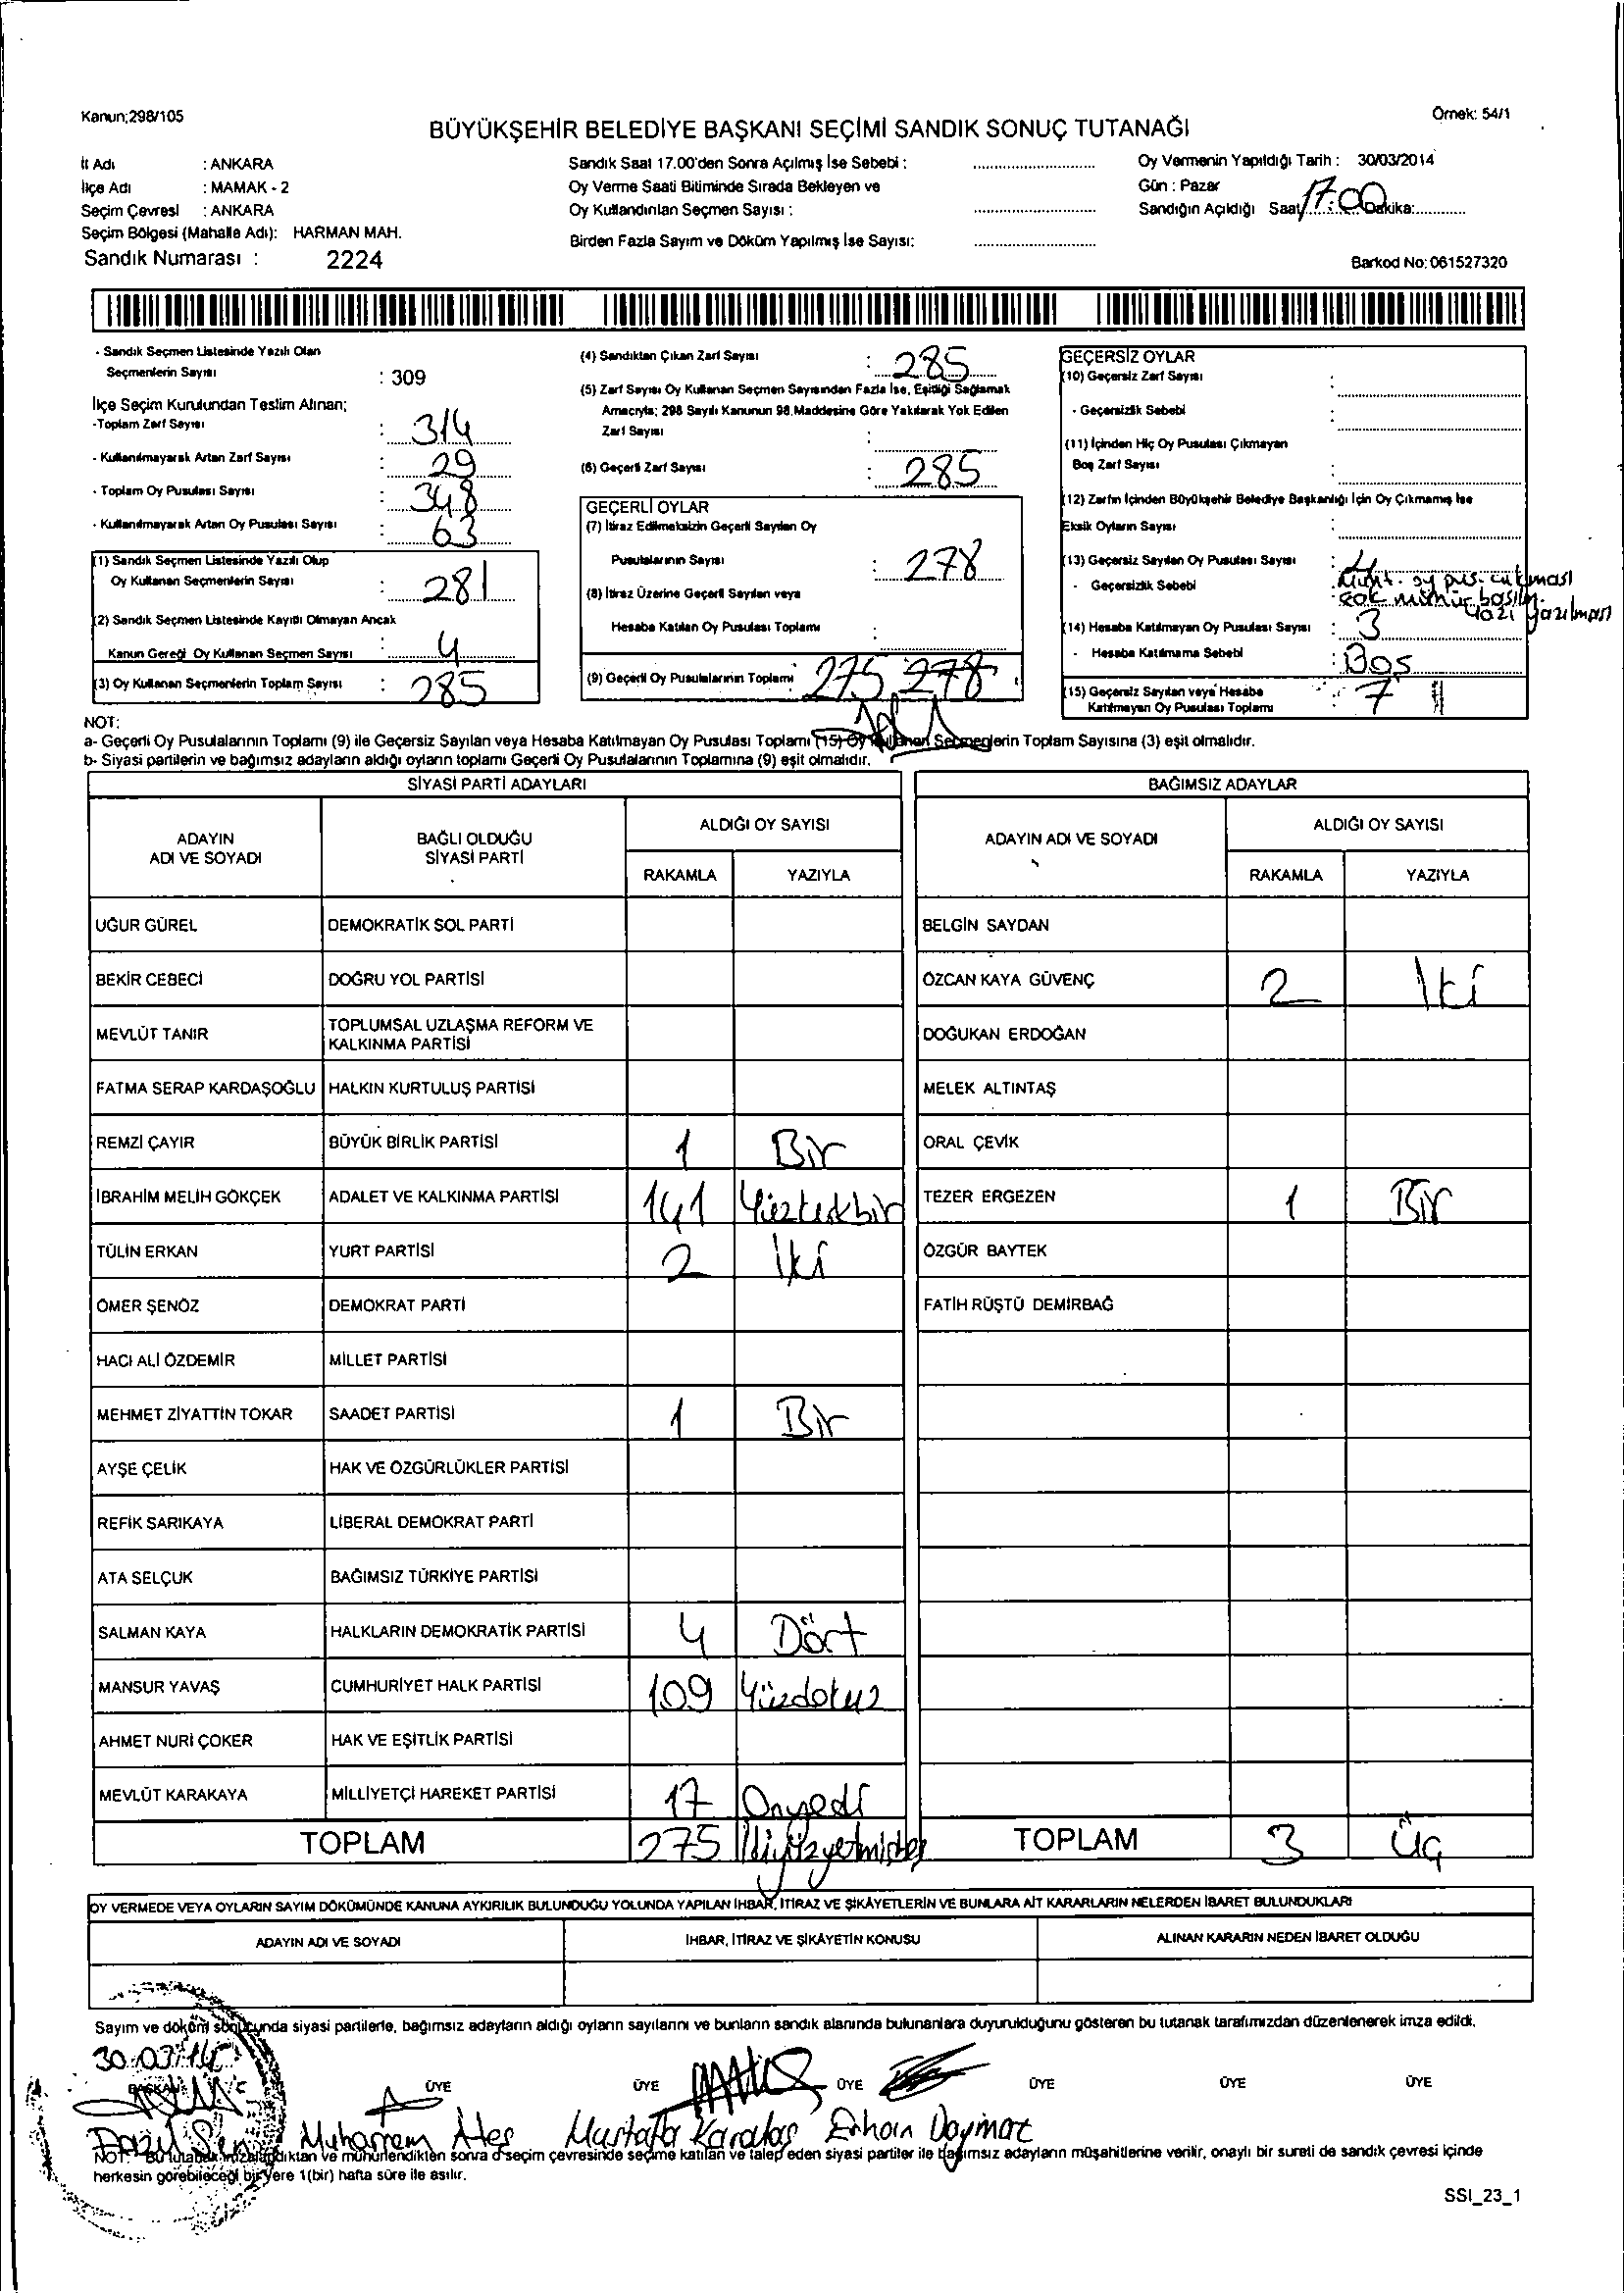 Kanun;298/105
Örnek: 54/1
BÜYÜKŞEHİR BELEDİYE BAŞKANI SEÇİMİ SANDIK SONUÇ TUTANAĞI
İl Adı : ANKARA
İlçe Adı : MAMAK - 2
Seçim Çevresi : ANKARA
Seçim Bölgesi (Mahalle Adı): HARMAN MAH.
Sandık Numarası : 2224
Sandık Saat 17.00'den Sonra Açılmış İse Sebebi :
Oy Verme Saati Bitiminde Sırada Bekleyen ve
Oy Kullandırılan Seçmen Sayısı :
Birden Fazla Sayım ve Döküm Yapılmış İse Sayısı:
Oy Vermenin Yapıldığı Tarih : 30/03/2014
Gün : Pazar
Sandığın Açıldığı Saat 17:00 Dakika:
Barkod No: 061527320
- Sandık Seçmen Listesinde Yazılı Olan
Seçmenlerin Sayısı : 309
İlçe Seçim Kurulundan Teslim Alınan;
-Toplam Zarf Sayısı : 314
- Kullanılmayarak Artan Zarf Sayısı : 29
- Toplam Oy Pusulası Sayısı : 348
- Kullanılmayarak Artan Oy Pusulası Sayısı : 63
(1) Sandık Seçmen Listesinde Yazılı Olup
Oy Kullanan Seçmenlerin Sayısı : 281
(2) Sandık Seçmen Listesinde Kayıtlı Olmayan Ancak
Kanun Gereği Oy Kullanan Seçmen Sayısı : 4
(3) Oy Kullanan Seçmenlerin Toplam Sayısı : 285
(4) Sandıktan Çıkan Zarf Sayısı : 285
(5) Zarf Sayısı Oy Kullanan Seçmen Sayısından Fazla İse, Eşitliği Sağlamak
Amacıyla; 298 Sayılı Kanunun 98.Maddesine Göre Yakılarak Yok Edilen
Zarf Sayısı :
(6) Geçerli Zarf Sayısı : 285
GEÇERLİ OYLAR
(7) İtiraz Edilmeksizin Geçerli Sayılan Oy
Pusulalarının Sayısı : 278
(8) İtiraz Üzerine Geçerli Sayılan veya
Hesaba Katılan Oy Pusulası Toplamı :
(9) Geçerli Oy Pusulalarının Toplamı : 275 278
GEÇERSİZ OYLAR
(10) Geçersiz Zarf Sayısı :
- Geçersizlik Sebebi :
(11) İçinden Hiç Oy Pusulası Çıkmayan
Boş Zarf Sayısı :
(12) Zarfın İçinden Büyükşehir Belediye Başkanlığı İçin Oy Çıkmamış İse
Eksik Oyların Sayısı :
(13) Geçersiz Sayılan Oy Pusulası Sayısı : 4
- Geçersizlik Sebebi : Muht. oy pus. çıkması
çok mühür basılm.
yazı yazılması
(14) Hesaba Katılmayan Oy Pusulası Sayısı : 3
- Hesaba Katılmama Sebebi : Boş
(15) Geçersiz Sayılan veya Hesaba
Katılmayan Oy Pusulası Toplamı : 7
NOT:
a- Geçerli Oy Pusulalarının Toplamı (9) ile Geçersiz Sayılan veya Hesaba Katılmayan Oy Pusulası Toplamı (15) Oy Kullanan Seçmenlerin Toplam Sayısına (3) eşit olmalıdır.
b- Siyasi partilerin ve bağımsız adayların aldığı oyların toplamı Geçerli Oy Pusulalarının Toplamına (9) eşit olmalıdır.
SİYASİ PARTİ ADAYLARI
BAĞIMSIZ ADAYLAR
ADAYIN
ADI VE SOYADI
BAĞLI OLDUĞU
SİYASİ PARTİ
ALDIĞI OY SAYISI
RAKAMLA YAZIYLA
ADAYIN ADI VE SOYADI
ALDIĞI OY SAYISI
RAKAMLA YAZIYLA
UĞUR GÜREL DEMOKRATİK SOL PARTİ BELGİN SAYDAN
BEKİR CEBECİ DOĞRU YOL PARTİSİ ÖZCAN KAYA GÜVENÇ 2 İki
MEVLÜT TANIR TOPLUMSAL UZLAŞMA REFORM VE
KALKINMA PARTİSİ DOĞUKAN ERDOĞAN
FATMA SERAP KARDAŞOĞLU HALKIN KURTULUŞ PARTİSİ MELEK ALTINTAŞ
REMZİ ÇAYIR BÜYÜK BİRLİK PARTİSİ 1 Bir ORAL ÇEVİK
İBRAHİM MELİH GÖKÇEK ADALET VE KALKINMA PARTİSİ 141 Yüzkırkbir TEZER ERGEZEN 1 Bir
TÜLİN ERKAN YURT PARTİSİ 2 İki ÖZGÜR BAYTEK
ÖMER ŞENÖZ DEMOKRAT PARTİ FATİH RÜŞTÜ DEMİRBAĞ
HACI ALİ ÖZDEMİR MİLLET PARTİSİ
MEHMET ZİYATTİN TOKAR SAADET PARTİSİ 1 Bir
AYŞE ÇELİK HAK VE ÖZGÜRLÜKLER PARTİSİ
REFİK SARIKAYA LİBERAL DEMOKRAT PARTİ
ATA SELÇUK BAĞIMSIZ TÜRKİYE PARTİSİ
SALMAN KAYA HALKLARIN DEMOKRATİK PARTİSİ 4 Dört
MANSUR YAVAŞ CUMHURİYET HALK PARTİSİ 109 Yüzdokuz
AHMET NURİ ÇOKER HAK VE EŞİTLİK PARTİSİ
MEVLÜT KARAKAYA MİLLİYETÇİ HAREKET PARTİSİ 17 Onyedi
TOPLAM 275 İkiyüzyetmişbeş TOPLAM 3 Üç
OY VERMEDE VEYA OYLARIN SAYIM DÖKÜMÜNDE KANUNA AYKIRILIK BULUNDUĞU YOLUNDA YAPILAN İHBAR, İTİRAZ VE ŞİKÂYETLERİN VE BUNLARA AİT KARARLARIN NELERDEN İBARET BULUNDUKLARI
ADAYIN ADI VE SOYADI İHBAR, İTİRAZ VE ŞİKÂYETİN KONUSU ALINAN KARARIN NEDEN İBARET OLDUĞU
Sayım ve döküm sonucunda siyasi partilerle, bağımsız adayların aldığı oyların sayılarını ve bunların sandık alanında bulunanlara duyurulduğunu gösteren bu tutanak tarafımızdan düzenlenerek imza edildi.
30.03.14
BAŞKAN ÜYE ÜYE ÜYE ÜYE ÜYE ÜYE
Muharrem Ateş Mustafa Karataş Erhan Doymaz
NOT: Bu tutanak imzalandıktan ve mühürlendikten sonra o seçim çevresinde seçime katılan ve talep eden siyasi partiler ile bağımsız adayların müşahitlerine verilir, onaylı bir sureti de sandık çevresi içinde
herkesin görebileceği bir yere 1(bir) hafta süre ile asılır.
SSI_23_1